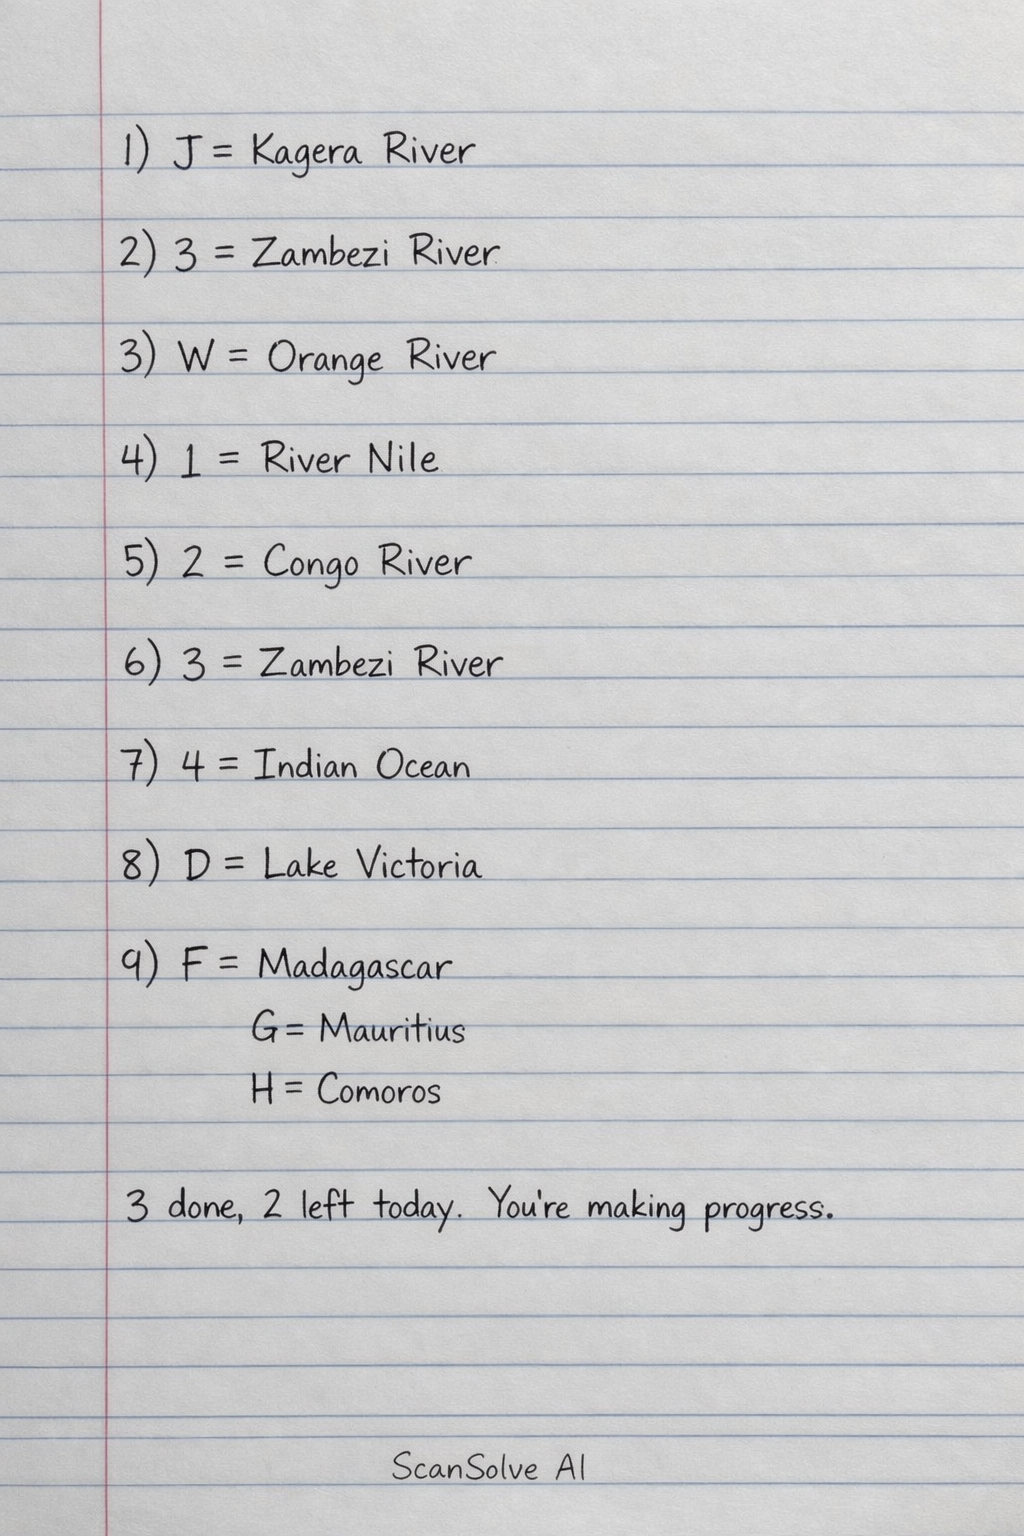 1) J = Kagera River
2) 3 = Zambezi River
3) W = Orange River
4) 1 = River Nile
5) 2 = Congo River
6) 3 = Zambezi River
7) 4 = Indian Ocean
8) D = Lake Victoria
9) F = Madagascar
G = Mauritius
H = Comoros
3 done, 2 left today. You're making progress.
ScanSolve AI